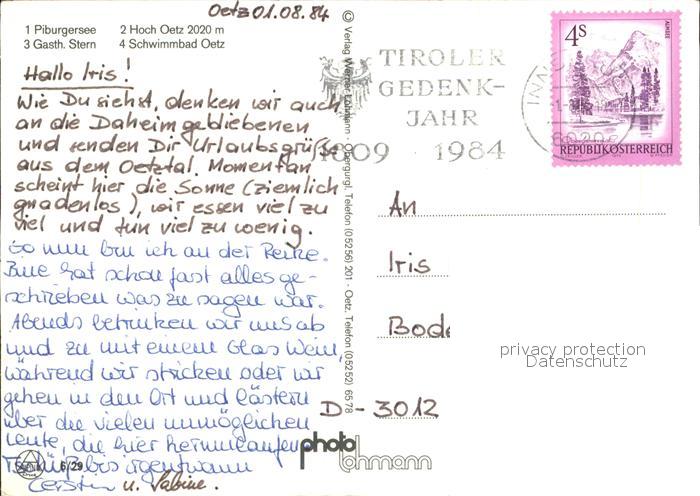 Oetz 01.08.84
1 Piburgersee 2 Hoch Oetz 2020 m
3 Gasth. Stern 4 Schwimmbad Oetz
Hallo Iris!
Wie Du siehst, denken wir auch
an die Daheimgebliebenen
und senden Dir Urlaubsgrüße
aus dem Oetztal. Momentan
scheint hier die Sonne (ziemlich
gnadenlos), wir essen viel zu
viel und tun viel zu wenig.
So nun bin ich an der Reihe.
Bine hat schon fast alles ge-
schrieben was zu sagen war.
Abends betrinken wir uns ab
und zu mit einem Glas Wein,
während wir stricken oder wir
gehen in den Ort und lästern
über die vielen unmöglichen
Leute, die hier herumlaufen.
Tschüß bis irgendwann
Kerstin u. Sabine.
6/29
© Verlag Werner Lohmann - Obergurgl, Telefon (05256) 201 - Oetz, Telefon (05252) 6578
TIROLER
GEDENK-
JAHR
1809 1984
INNS
6020
4 S
ALMSEE
REPUBLIK ÖSTERREICH
An
Iris
Bode
privacy protection
Datenschutz
D-3012
photo
lohmann